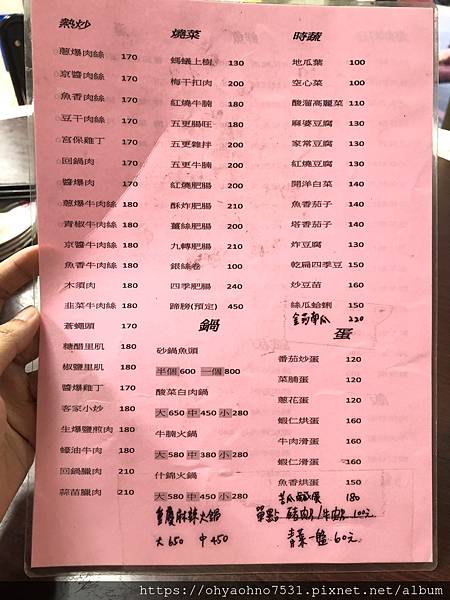 熱炒
蔥爆肉絲 170
京醬肉絲 170
魚香肉絲 170
豆干肉絲 170
宮保雞丁 170
回鍋肉 170
醬爆肉 170
蔥爆牛肉絲 180
青椒牛肉絲 180
京醬牛肉絲 180
魚香牛肉絲 180
木須肉 180
韭菜牛肉絲 180
蒼蠅頭 170
糖醋里肌 180
椒鹽里肌 180
醬爆雞丁 170
客家小炒 180
生爆鹽煎肉 180
蠔油牛肉 180
回鍋臘肉 210
蒜苗臘肉 210
燒菜
螞蟻上樹 130
梅干扣肉 200
紅燒牛腩 180
五更腸旺 180
五更雜拌 200
五更牛腩 200
紅燒肥腸 200
酥炸肥腸 210
薑絲肥腸 200
九轉肥腸 210
銀絲卷 100
四季肥腸 240
蹄膀(預定) 450
鍋
砂鍋魚頭
半個600 一個800
酸菜白肉鍋
大650 中450 小280
牛腩火鍋
大580 中380 小280
什錦火鍋
大580 中450 小280
重慶麻辣火鍋
大650 中450
時蔬
地瓜葉 100
空心菜 100
酸溜高麗菜 110
麻婆豆腐 130
家常豆腐 130
紅燒豆腐 130
開洋白菜 140
魚香茄子 140
塔香茄子 140
炸豆腐 130
乾扁四季豆 150
炒豆苗 160
絲瓜蛤蜊 150
220
蛋
番茄炒蛋 120
菜脯蛋 120
蔥花蛋 120
蝦仁烘蛋 160
牛肉滑蛋 160
蝦仁滑蛋 160
魚香烘蛋 150
苦瓜鹹蛋 180
單點 豬肉/牛肉 100元
青菜一盤 60元
https://ohyaohno7531.pixnet.net/album